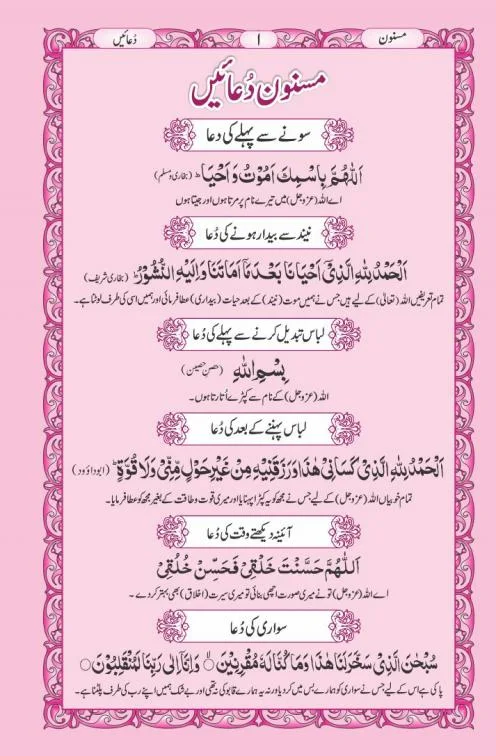 مسنون
۱
دُعائیں
مسنون دُعائیں
سونے سے پہلے کی دعا
اَللّٰهُمَّ بِاسْمِكَ اَمُوْتُ وَ اَحْيَا ؕ (بخاری و مسلم)
اے اللہ (عزوجل) میں تیرے نام پر مرتا ہوں اور جیتا ہوں
نیند سے بیدار ہونے کی دُعا
اَلْحَمْدُ لِلّٰهِ الَّذِیْۤ اَحْيَانَا بَعْدَ مَاۤ اَمَاتَنَا وَ اِلَيْهِ النُّشُوْرُ ؕ (بخاری شریف)
تمام تعریفیں اللہ (تعالیٰ) کے لیے ہیں جس نے ہمیں موت (نیند) کے بعد حیات (بیداری) عطا فرمائی اور ہمیں اسی کی طرف لوٹنا ہے۔
لباس تبدیل کرنے سے پہلے کی دُعا
بِسْمِ اللّٰهِ (حصن حصین)
اللہ (عزوجل) کے نام سے کپڑے اُتارتا ہوں۔
لباس پہننے کے بعد کی دُعا
اَلْحَمْدُ لِلّٰهِ الَّذِیْ كَسَانِیْ هٰذَا وَ رَزَقَنِيْهِ مِنْ غَيْرِ حَوْلٍ مِّنِّیْ وَلَا قُوَّةٍ ؕ (ابوداؤد)
تمام خوبیاں اللہ (عزوجل) کے لیے جس نے مجھ کو یہ کپڑا پہنایا اور میری قوت و طاقت کے بغیر مجھ کو عطا فرمایا۔
آئینہ دیکھتے وقت کی دُعا
اَللّٰهُمَّ حَسَّنْتَ خَلْقِیْ فَحَسِّنْ خُلُقِیْ
اے اللہ (عزوجل) تو نے میری صورت اچھی بنائی تو میری سیرت (اخلاق) بھی بہتر کر دے۔
سواری کی دُعا
سُبْحٰنَ الَّذِیْ سَخَّرَ لَنَا هٰذَا وَمَا كُنَّا لَهٗ مُقْرِنِيْنَ ۙ وَاِنَّاۤ اِلٰی رَبِّنَا لَمُنْقَلِبُوْنَ ○
پاکی ہے اس کے لیے جس نے سواری کو ہمارے بس میں کر دیا اور نہ یہ ہمارے قابو کی نہ تھی اور بے شک ہمیں اپنے رب کی طرف پلٹنا ہے۔